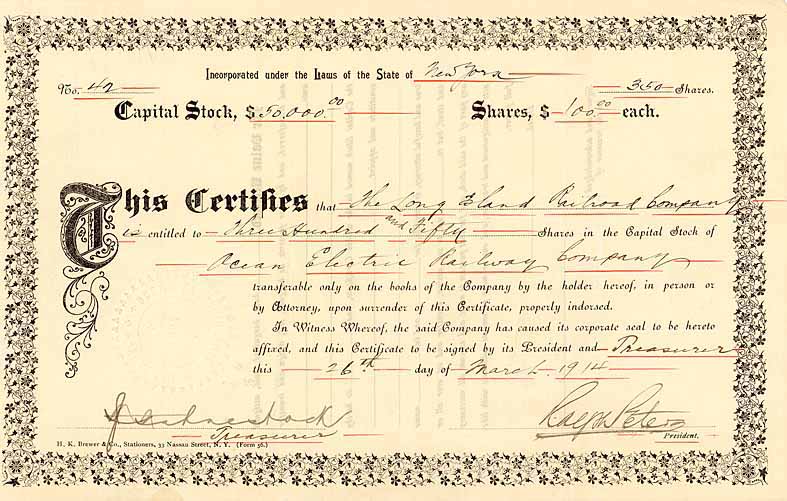 Incorporated under the Laws of the State of New York
No. 42 350 Shares.
Capital Stock, $50,000.00 Shares, $100.00 each.
This Certifies that The Long Island Railroad Company
is entitled to Three Hundred and Fifty Shares in the Capital Stock of
Ocean Electric Railway Company
transferable only on the books of the Company by the holder hereof, in person or
by Attorney, upon surrender of this Certificate, properly indorsed.
In Witness Whereof, the said Company has caused its corporate seal to be hereto
affixed, and this Certificate to be signed by its President and Treasurer
this 26th day of March 1914
Ralph Peters
Treasurer President.
H. K. Brewer & Co., Stationers, 33 Nassau Street, N. Y. (Form 56.)